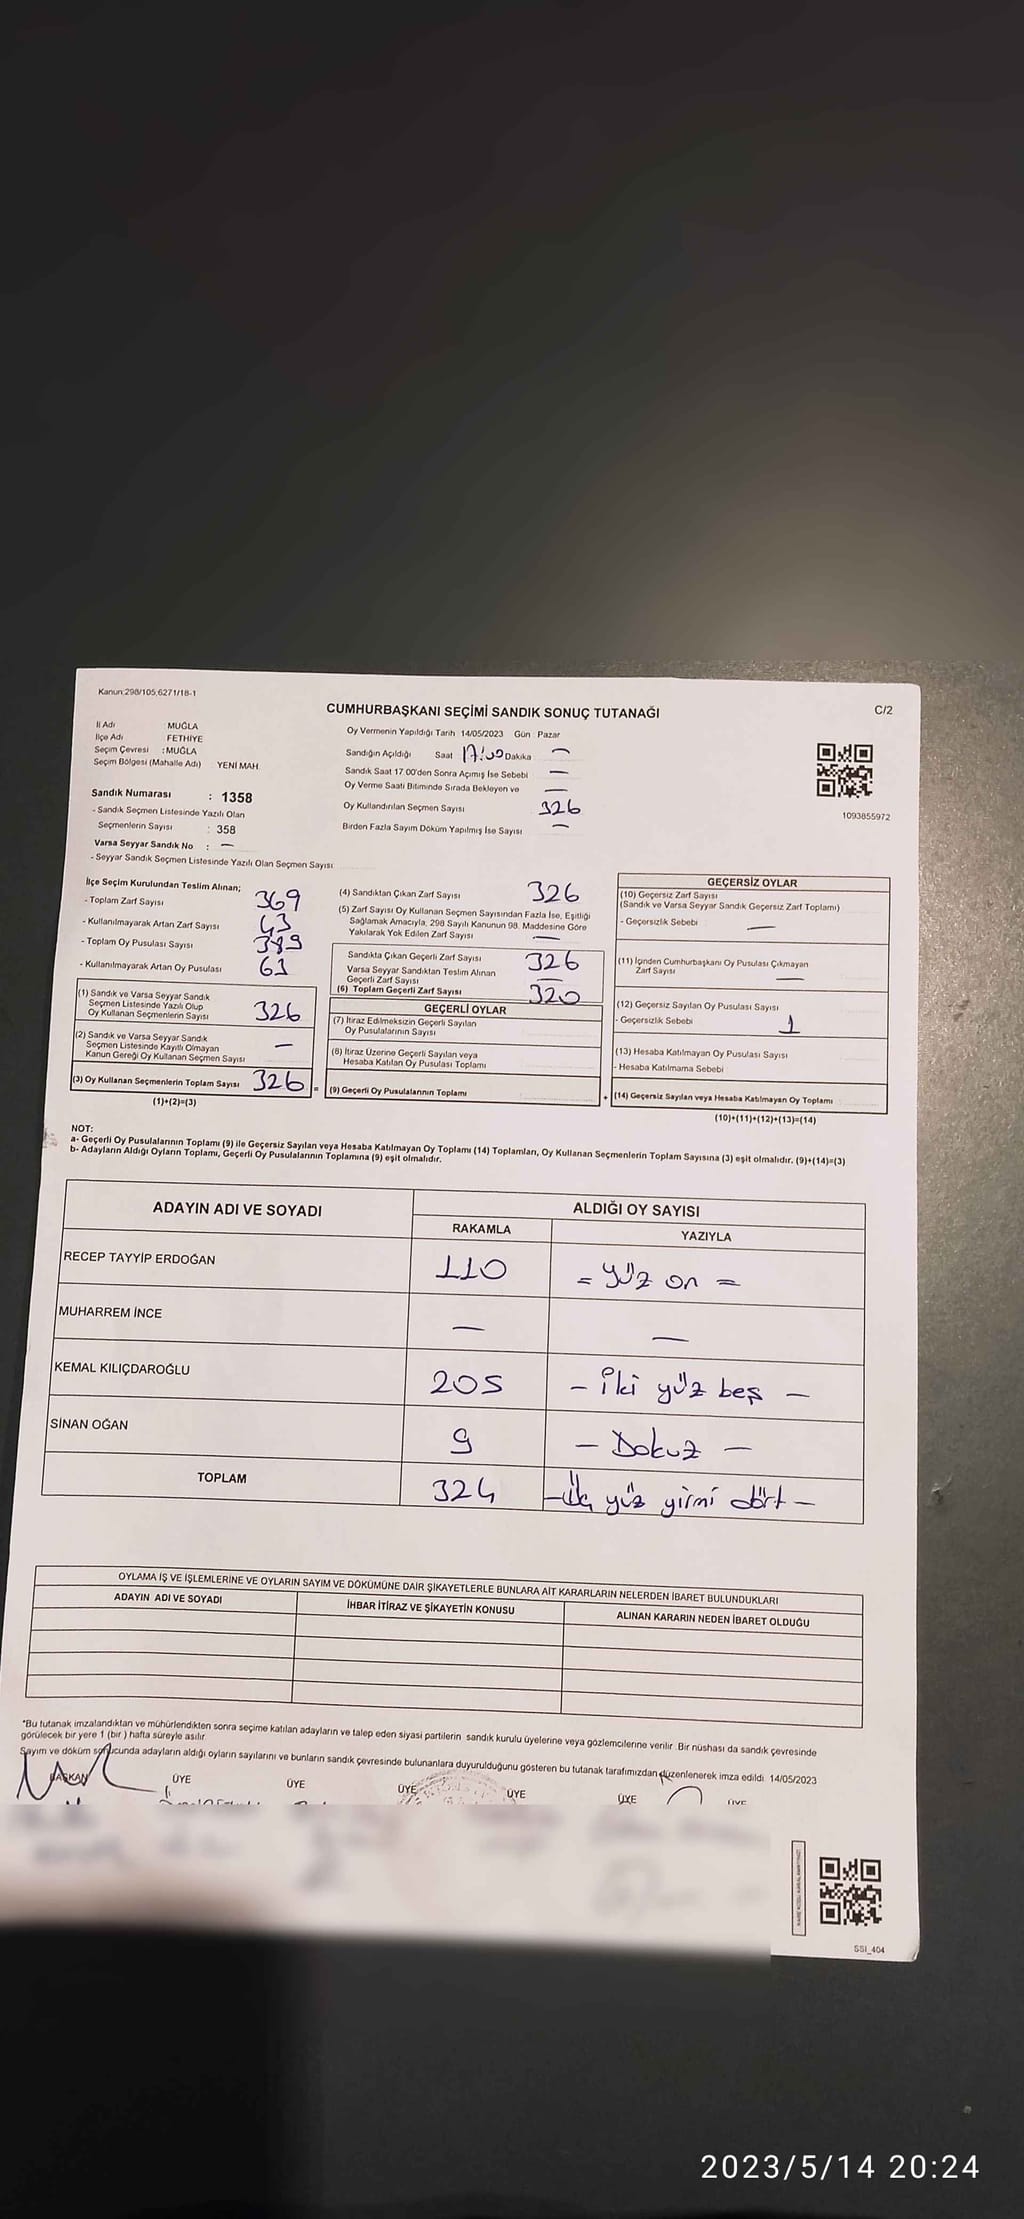 Kanun:298/105;6271/18-1
CUMHURBAŞKANI SEÇİMİ SANDIK SONUÇ TUTANAĞI
C/2
İl Adı : MUĞLA
İlçe Adı : FETHİYE
Seçim Çevresi : MUĞLA
Seçim Bölgesi (Mahalle Adı) YENİ MAH.
Sandık Numarası : 1358
- Sandık Seçmen Listesinde Yazılı Olan
Seçmenlerin Sayısı : 358
Varsa Seyyar Sandık No : —
- Seyyar Sandık Seçmen Listesinde Yazılı Olan Seçmen Sayısı:
Oy Vermenin Yapıldığı Tarih 14/05/2023 Gün : Pazar
Sandığın Açıldığı Saat 17:00 Dakika —
Sandık Saat 17.00'den Sonra Açımış İse Sebebi —
Oy Verme Saati Bitiminde Sırada Bekleyen ve —
Oy Kullandırılan Seçmen Sayısı 326
Birden Fazla Sayım Döküm Yapılmış İse Sayısı —
1093855972
İlçe Seçim Kurulundan Teslim Alınan;
- Toplam Zarf Sayısı 369
- Kullanılmayarak Artan Zarf Sayısı 43
- Toplam Oy Pusulası Sayısı
- Kullanılmayarak Artan Oy Pusulası 63
(1) Sandık ve Varsa Seyyar Sandık
Seçmen Listesinde Yazılı Olup
Oy Kullanan Seçmenlerin Sayısı 326
(2) Sandık ve Varsa Seyyar Sandık
Seçmen Listesinde Kayıtlı Olmayan
Kanun Gereği Oy Kullanan Seçmen Sayısı —
(3) Oy Kullanan Seçmenlerin Toplam Sayısı 326 =
(1)+(2)=(3)
(4) Sandıktan Çıkan Zarf Sayısı 326
(5) Zarf Sayısı Oy Kullanan Seçmen Sayısından Fazla İse, Eşitliği
Sağlamak Amacıyla, 298 Sayılı Kanunun 98. Maddesine Göre
Yakılarak Yok Edilen Zarf Sayısı —
Sandıkta Çıkan Geçerli Zarf Sayısı 326
Varsa Seyyar Sandıktan Teslim Alınan
Geçerli Zarf Sayısı —
(6) Toplam Geçerli Zarf Sayısı 320
GEÇERLİ OYLAR
(7) İtiraz Edilmeksizin Geçerli Sayılan
Oy Pusulalarının Sayısı
(8) İtiraz Üzerine Geçerli Sayılan veya
Hesaba Katılan Oy Pusulası Toplamı
(9) Geçerli Oy Pusulalarının Toplamı +
GEÇERSİZ OYLAR
(10) Geçersiz Zarf Sayısı
(Sandık ve Varsa Seyyar Sandık Geçersiz Zarf Toplamı)
- Geçersizlik Sebebi —
(11) İçinden Cumhurbaşkanı Oy Pusulası Çıkmayan
Zarf Sayısı —
(12) Geçersiz Sayılan Oy Pusulası Sayısı
- Geçersizlik Sebebi 1
(13) Hesaba Katılmayan Oy Pusulası Sayısı
- Hesaba Katılmama Sebebi
(14) Geçersiz Sayılan veya Hesaba Katılmayan Oy Toplamı
(10)+(11)+(12)+(13)=(14)
NOT:
a- Geçerli Oy Pusulalarının Toplamı (9) ile Geçersiz Sayılan veya Hesaba Katılmayan Oy Toplamı (14) Toplamları, Oy Kullanan Seçmenlerin Toplam Sayısına (3) eşit olmalıdır. (9)+(14)=(3)
b- Adayların Aldığı Oyların Toplamı, Geçerli Oy Pusulalarının Toplamına (9) eşit olmalıdır.
ADAYIN ADI VE SOYADI
ALDIĞI OY SAYISI
RAKAMLA YAZIYLA
RECEP TAYYİP ERDOĞAN 110 = yüz on =
MUHARREM İNCE — —
KEMAL KILIÇDAROĞLU 205 - iki yüz beş -
SİNAN OĞAN 9 - Dokuz -
TOPLAM 324 - Üç yüz yirmi dört -
OYLAMA İŞ VE İŞLEMLERİNE VE OYLARIN SAYIM VE DÖKÜMÜNE DAİR ŞİKAYETLERLE BUNLARA AİT KARARLARIN NELERDEN İBARET BULUNDUKLARI
ADAYIN ADI VE SOYADI İHBAR İTİRAZ VE ŞİKAYETİN KONUSU ALINAN KARARIN NEDEN İBARET OLDUĞU
*Bu tutanak imzalandıktan ve mühürlendikten sonra seçime katılan adayların ve talep eden siyasi partilerin sandık kurulu üyelerine veya gözlemcilerine verilir. Bir nüshası da sandık çevresinde
görülecek bir yere 1 (bir) hafta süreyle asılır.
Sayım ve döküm sonucunda adayların aldığı oyların sayılarını ve bunların sandık çevresinde bulunanlara duyurulduğunu gösteren bu tutanak tarafımızdan düzenlenerek imza edildi. 14/05/2023
BAŞKAN ÜYE ÜYE ÜYE ÜYE ÜYE ÜYE
SSI_404
2023/5/14 20:24